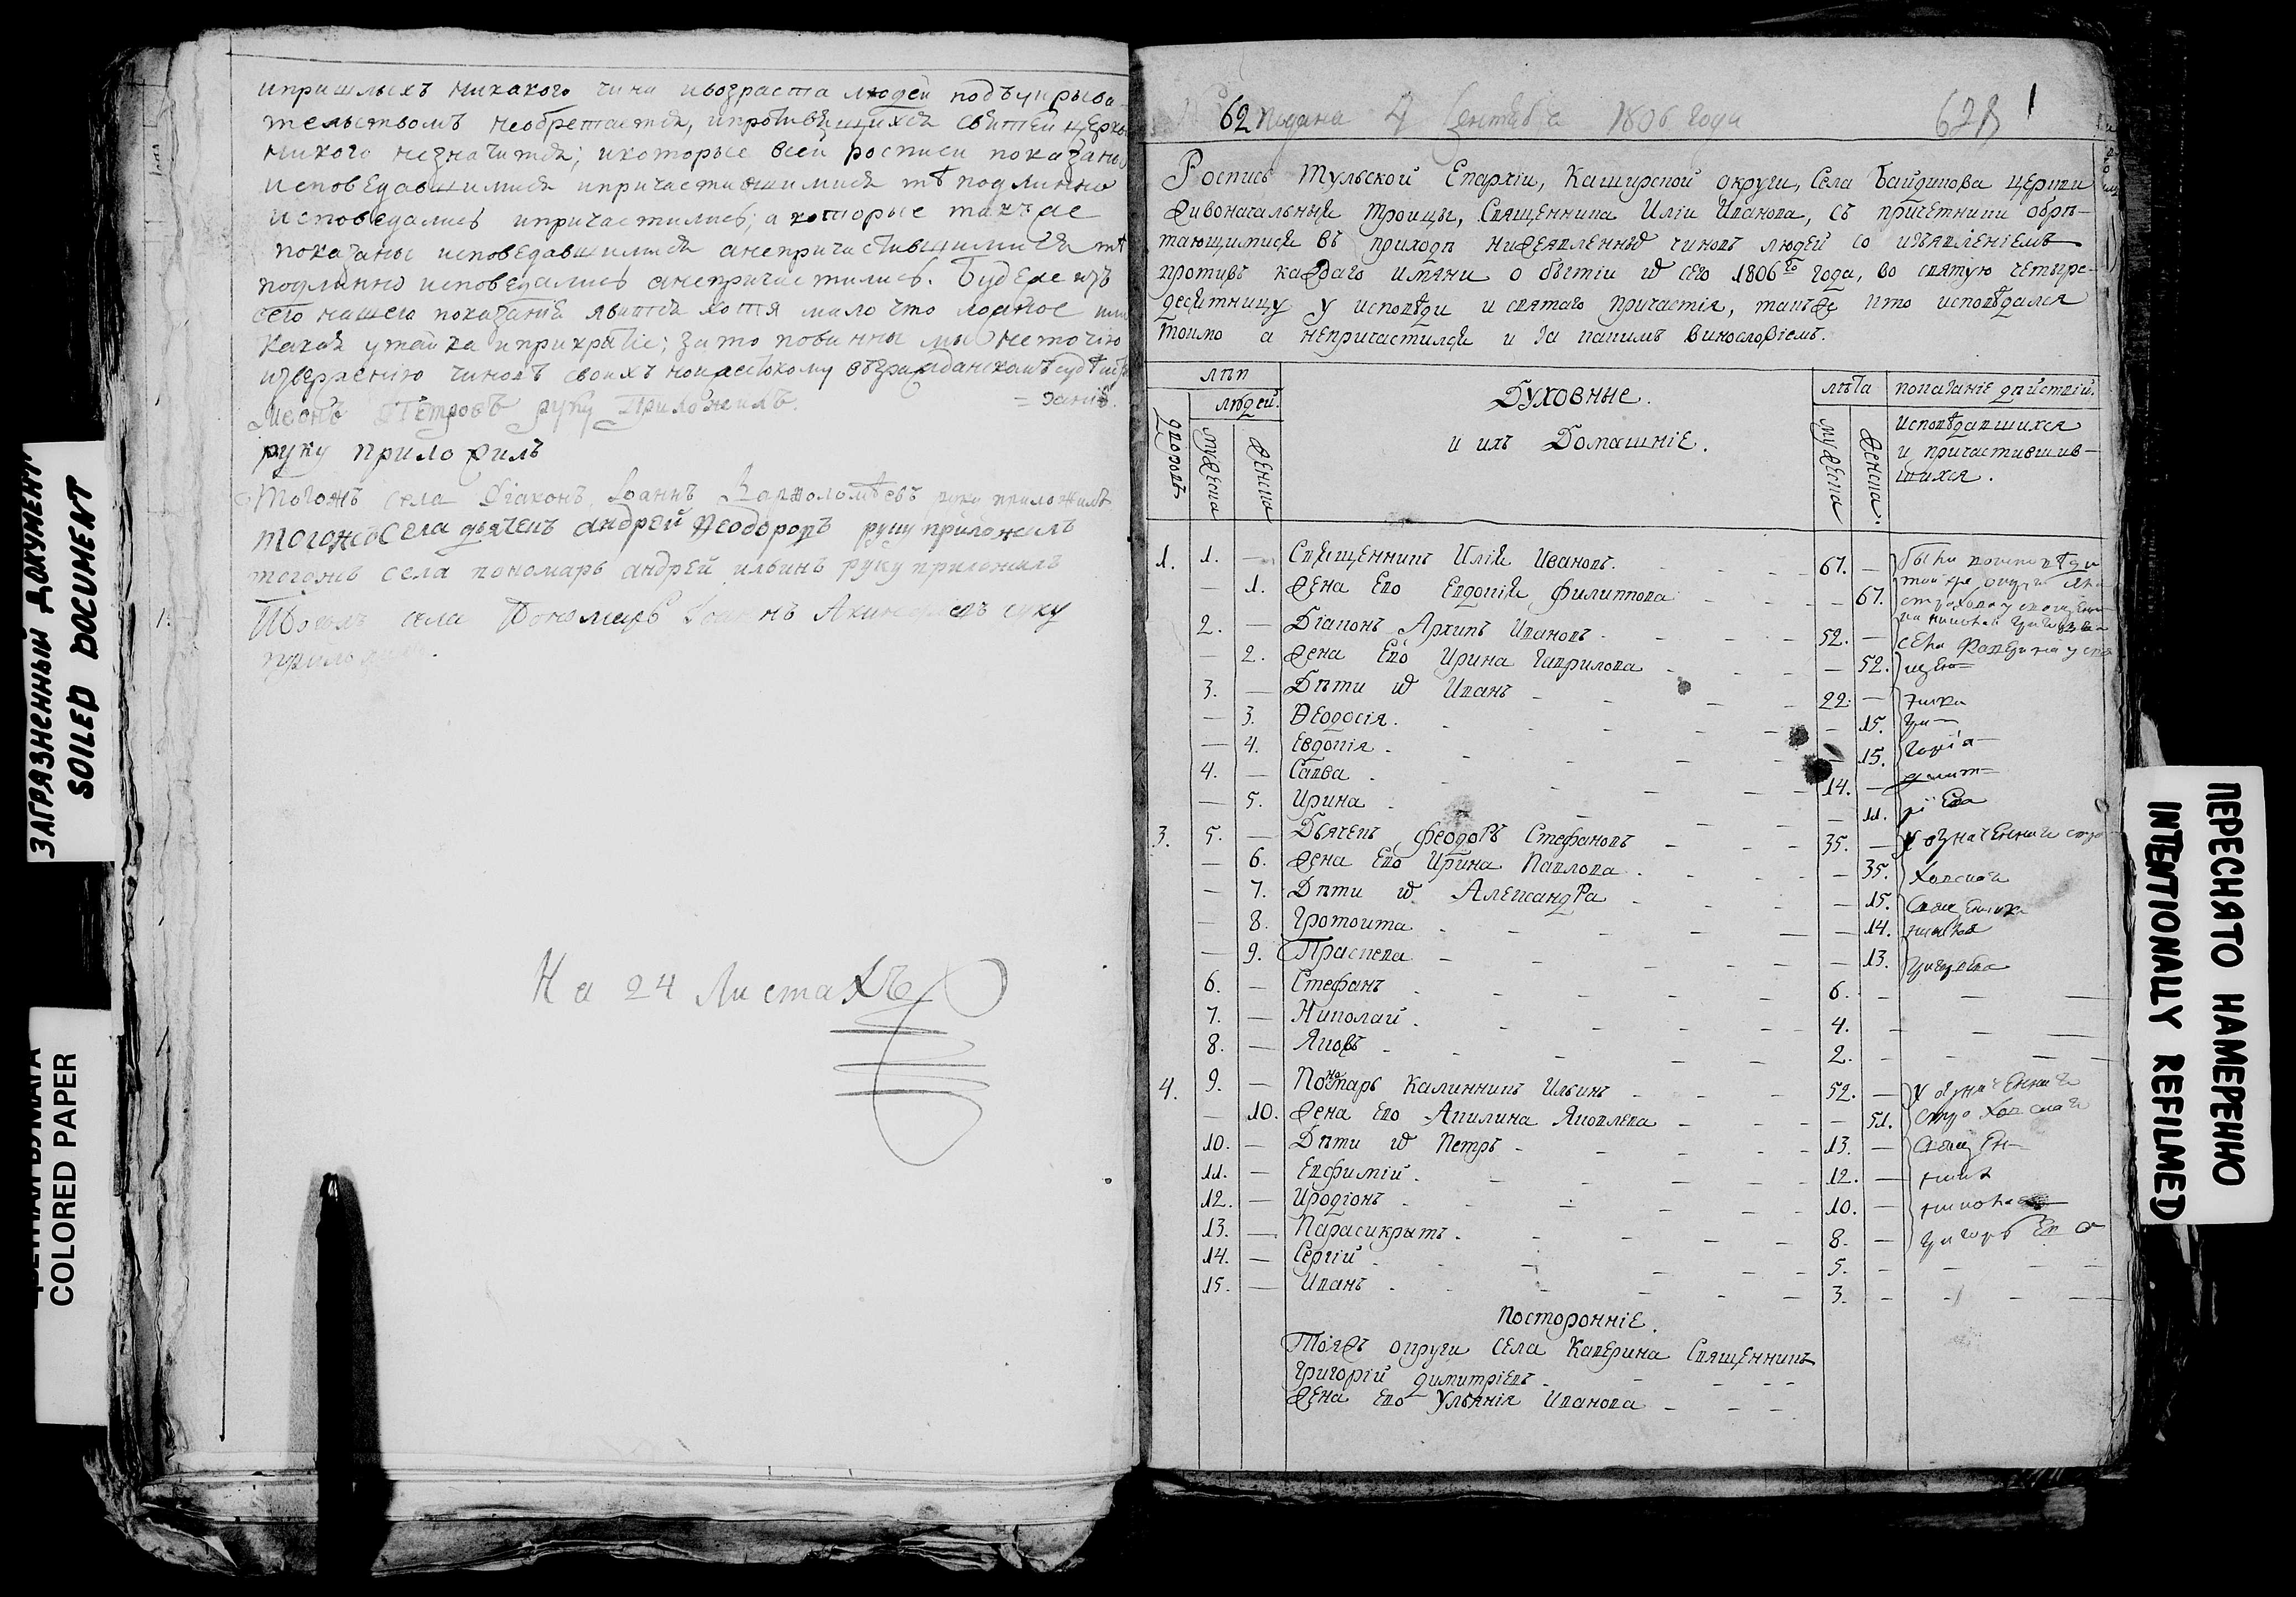 ипришлыхъ никакого чина ивозраста людей подъукрыва-
тельствомъ необретается, ипротивящихся святей церкви
никого незначится; икоторые всей росписи показаны
исповедавшимися ипричастившимися тѣ подлинно
исповедались ипричастились; а которые такъже
показаны исповедавшимися анепричастившимися тѣ
подлинно исповедались анепричастились. Будеже изъ
сего нашего показанія явится хотя мало что ложное или
какая утайка иприкрытіе; зато повинны мы неточію
изверженію чиновъ своихъ ноижестокому въгражданскомъ судѣ
Петровъ руку приложилъ.
руку приложилъ
Тогожъ села Діаконъ Іоаннъ Варѳоломѣевъ руку приложилъ
тогожъ села дьячекъ андрей Ѳеодоровъ руку приложилъ
тогожъ села пономарь андрей ильинъ руку приложилъ
села Пономарь Іоаннъ руку
На 24 Листахъ
62 Подана 4 Сентября 1806 года 1
Роспись Тульской Епархіи, Каширской округи, Села Байдикова церкви
Живоначальныя Троицы, Священника Иліи Иванова, съ причетники обрѣ-
тающимися въ приходѣ нижеявленныхъ чиновъ людей со изъявленіемъ
противъ каждаго имяни о бытіи ѿ сего 1806го года, во святую четыре-
десятницу у исповѣди и святаго причастія, такъже кто исповѣдался
токмо а непричастился и за какимъ винословіемъ.
лѣта показаніе дѣйствій.
людей.
Духовные.
и ихъ Домашніе.
дворовъ мужеска женска мужеска женска.
исповѣдавшихся
и причастившив-
шихся.
1. 1. — Священникъ Илія Ивановъ. 67. —
— 1. Жена Его Евдокія Филиппова — 67.
2. — Діаконъ Архипъ Ивановъ. 52. —
— 2. Жена Его Ирина Гаврилова — 52.
3. — Дѣти ѿ Иванъ 22. —
— 3. Ѳеодосія. — 15.
— 4. Евдокія — 15.
4. — Савва 14. —
— 5. Ирина — 11.
3. 5. — Дьячекъ Феодоръ Стефановъ 35. —
— 6. Жена Его Ирина Павлова — 35.
— 7. Дѣти ѿ Александра — 15.
— 8. — 14.
— 9. Праскева — 13.
6. — Стефанъ 6. —
7. — Николай 4. —
8. — Яковъ 2. —
4. 9. — Пономарь Калинникъ Ильинъ 52. —
— 10. Жена Его Акилина Яковлева — 51.
10. — Дѣти ѿ Петръ 13. —
11. — Евфимій 12. —
12. — Иродіонъ 10. —
13. — 8. —
14. — Сергій 5. —
15. — Иванъ 3. —
Посторонніе.
Тояжъ округи села Каверина Священникъ
Григорій Димитріевъ
Жена Его Ульянія Иванова
ЗАГРЯЗНЕННЫЙ ДОКУМЕНТ
SOILED DOCUMENT
COLORED PAPER
ПЕРЕСНЯТО НАМЕРЕННО
INTENTIONALLY REFILMED